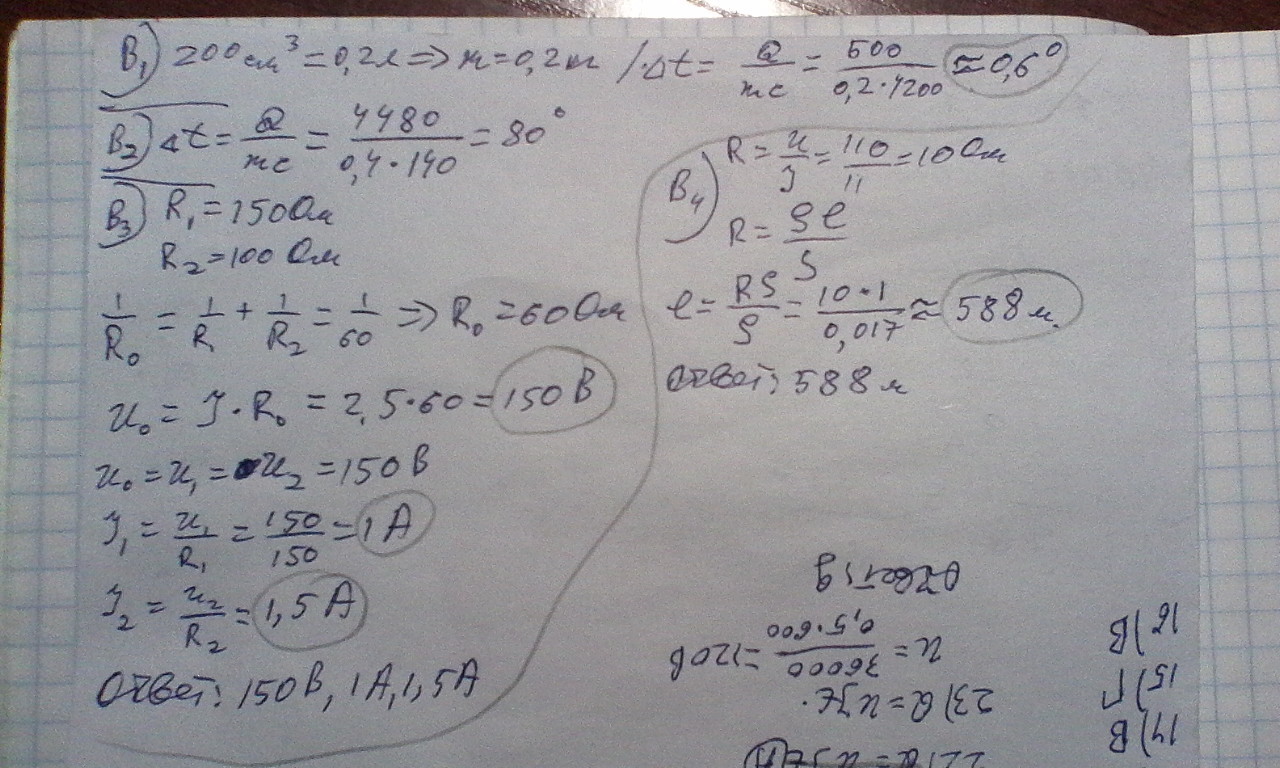 В₁) 200 см³ = 0,2 л => m = 0,2 кг / Δt = Q/mc = 500/0,2·4200 ≈ 0,6°
В₂) Δt = Q/mc = 4480/0,4·140 = 80°
В₃) R₁ = 150 Ом
R₂ = 100 Ом
1/R₀ = 1/R₁ + 1/R₂ = 1/60 => R₀ = 60 Ом
U₀ = J · R₀ = 2,5·60 = 150 В
U₀ = U₁ = U₂ = 150 В
J₁ = U₁/R₁ = 150/150 = 1 А
J₂ = U₂/R₂ = 1,5 А
Ответ: 150 В, 1 А, 1,5 А
В₄) R = U/J = 110/11 = 10 Ом
R = ρℓ/S
ℓ = RS/ρ = 10·1/0,017 ≈ 588 м.
Ответ: 588 м
14) В
15) Г
16) В
23) Q = UJt.
U = 36000/0,5·600 = 120 В